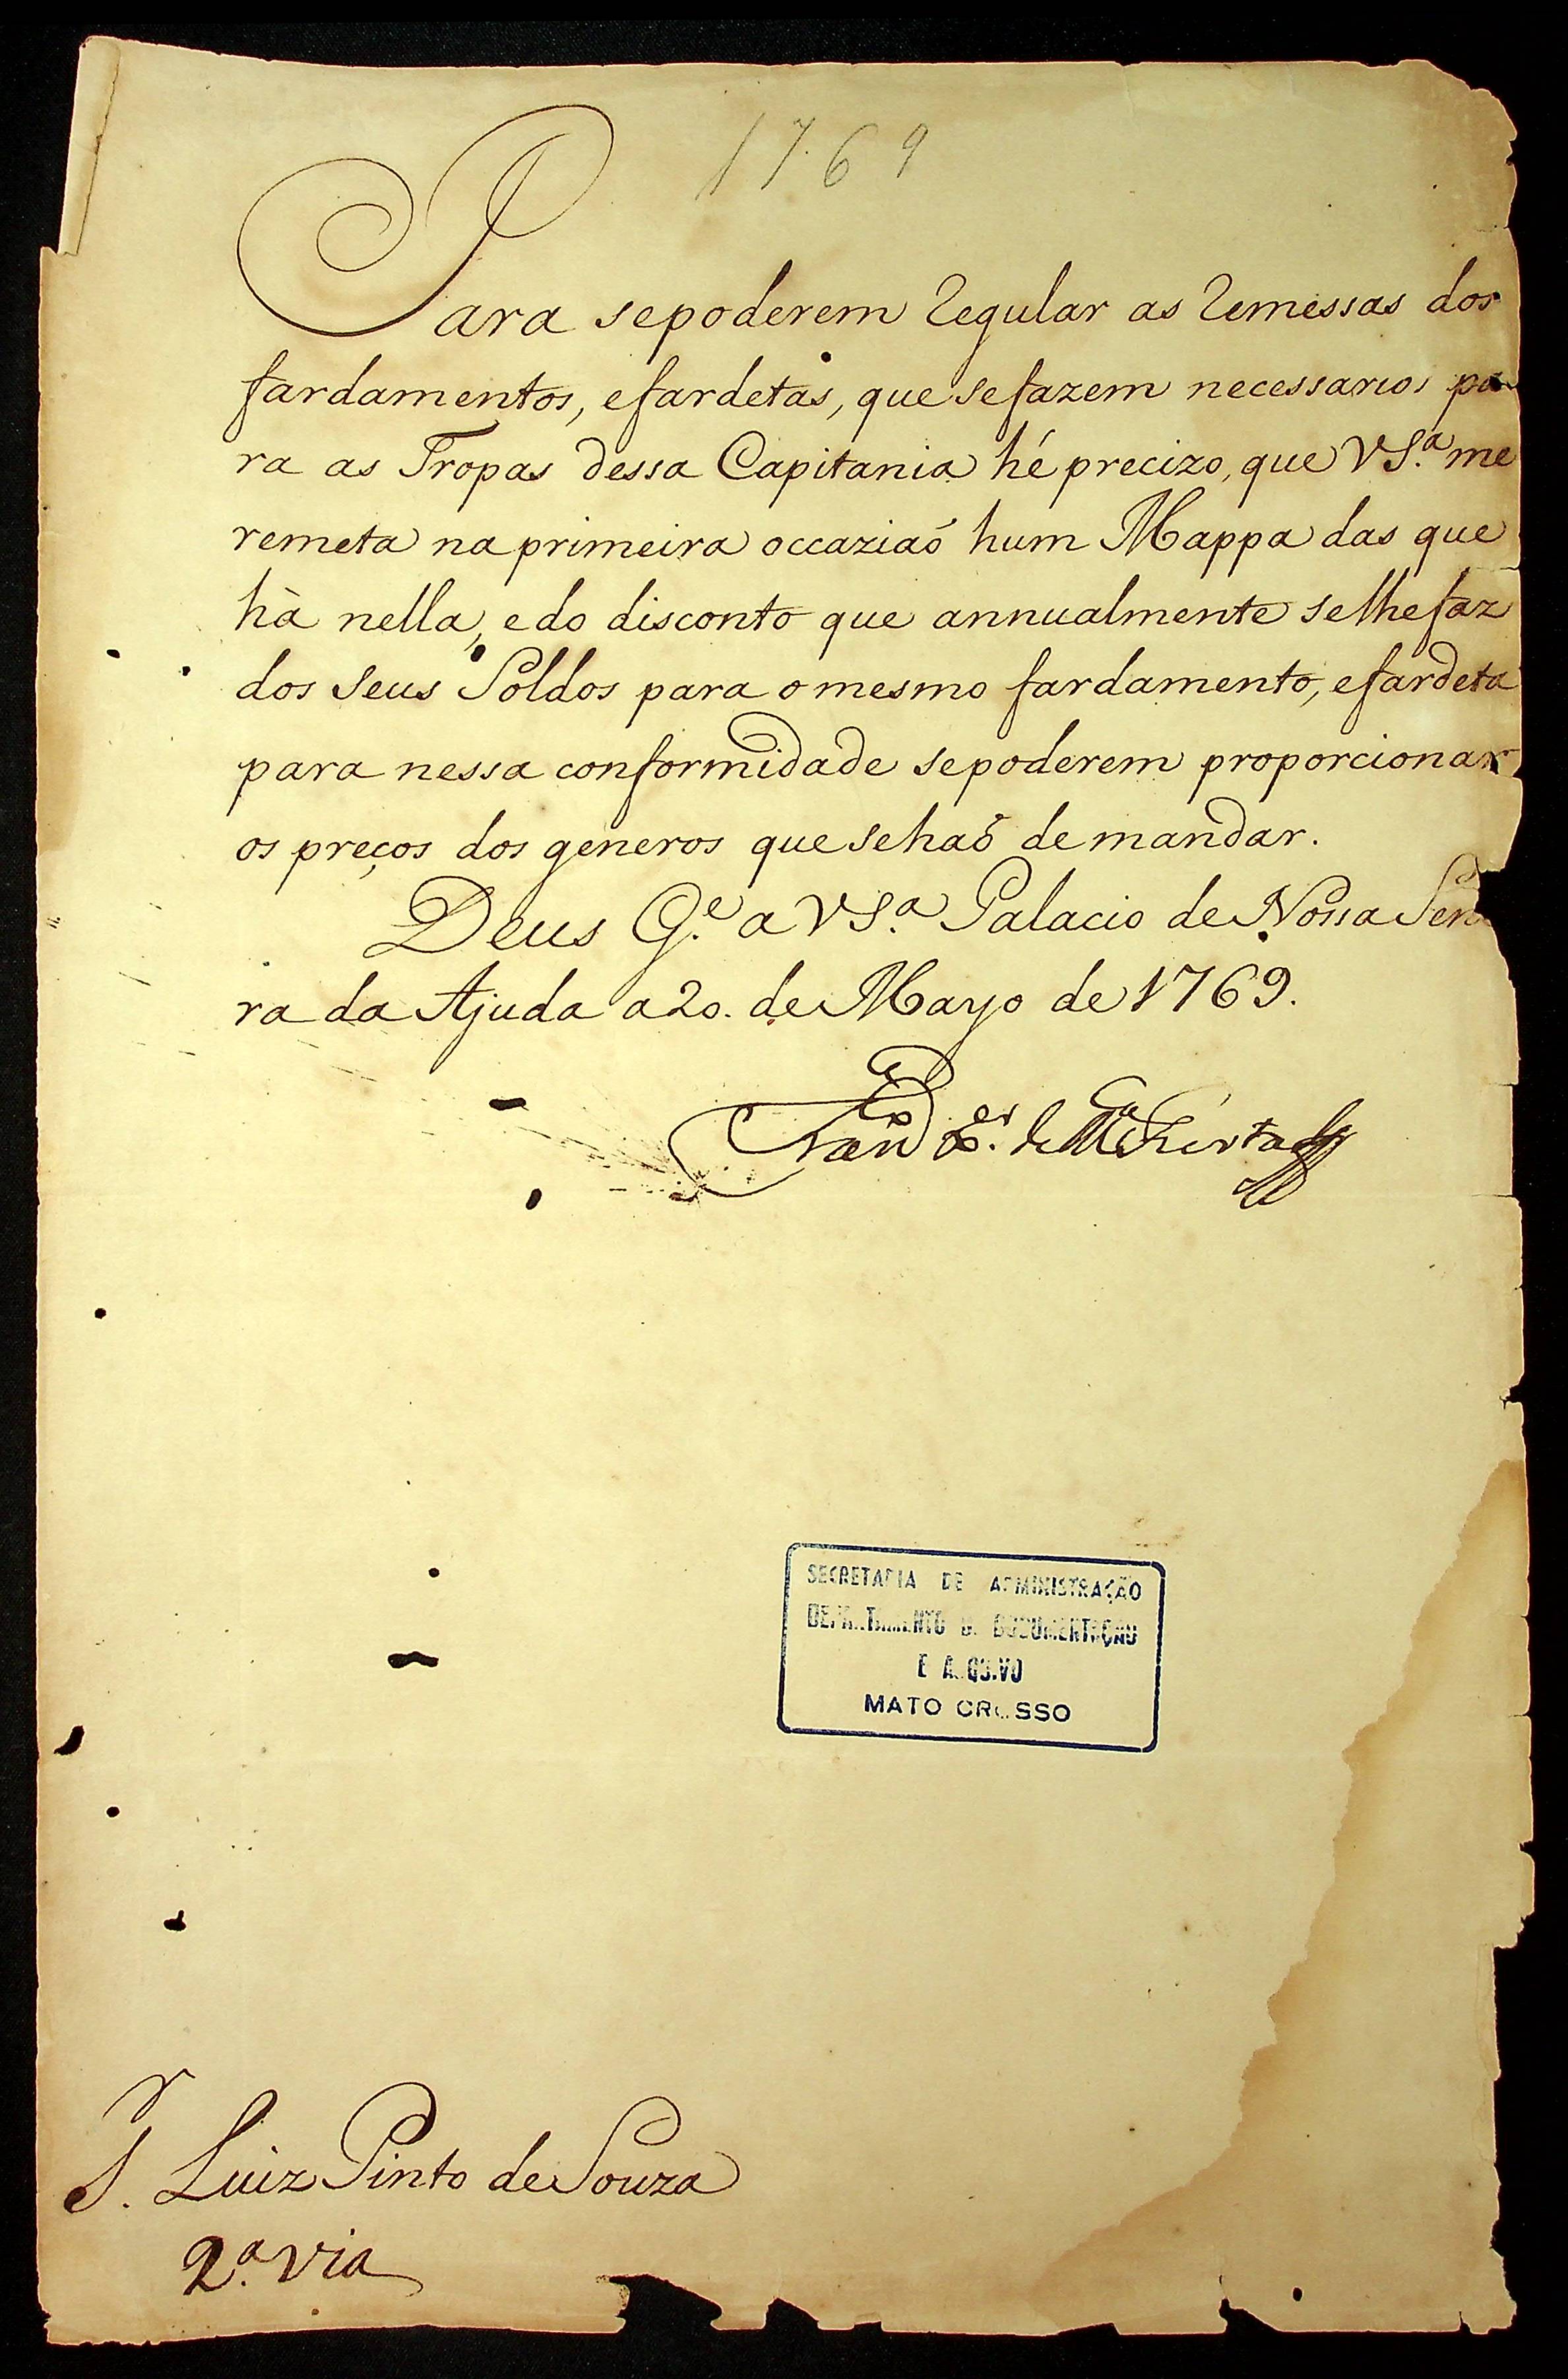 1769
Para sepoderem Regular as Remessas dos
fardamentos, efardetas, que sefazem necessarios pa
ra as Tropas dessa Capitania hé precizo, que VS.ª me
remeta na primeira occaziaõ hum Mappa das que
hà nella, e do disconto que annualmente selhefaz
dos seus Soldos para o mesmo fardamento, efardeta
para nessa conformidade sepoderem proporcionar
os preços dos generos que sehaõ de mandar.
Deus G.e a VS.ª Palacio de Nossa Senho
ra da Ajuda a 20. de Mayo de 1769.
Fran.co X.er de M.ça Furtado
SECRETARIA DE ADMINISTRAÇÃO
DEPARTAMENTO DE DOCUMENTAÇÃO
E ARQUIVO
MATO GROSSO
S.r Luiz Pinto de Souza
2.ª via